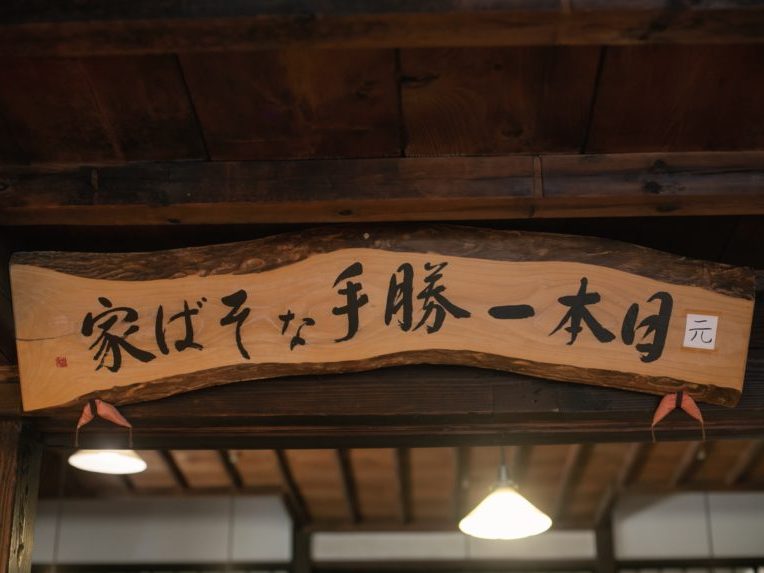 元日本一勝手なそば家